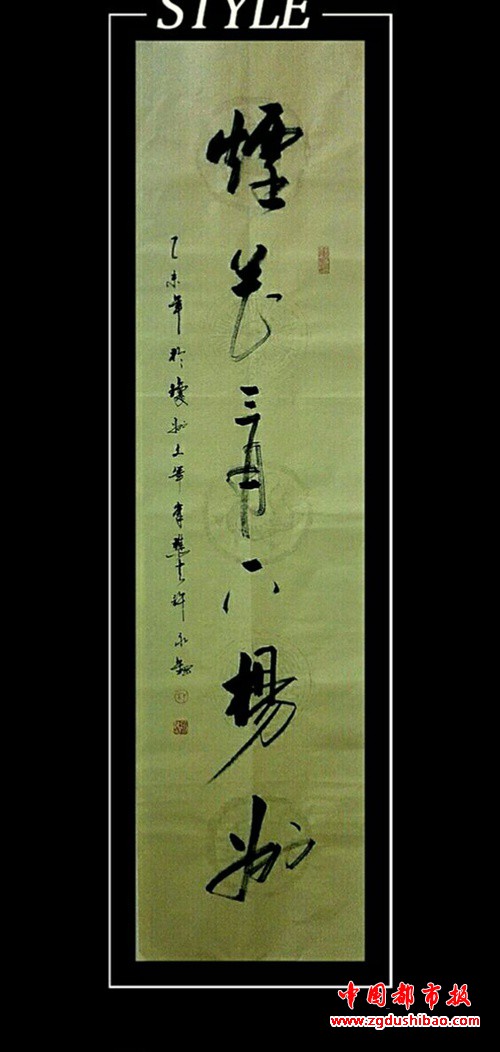 STYLE
煙花三月下楊州
乙未年於瓊州
中国都市报
www.zgdushibao.com